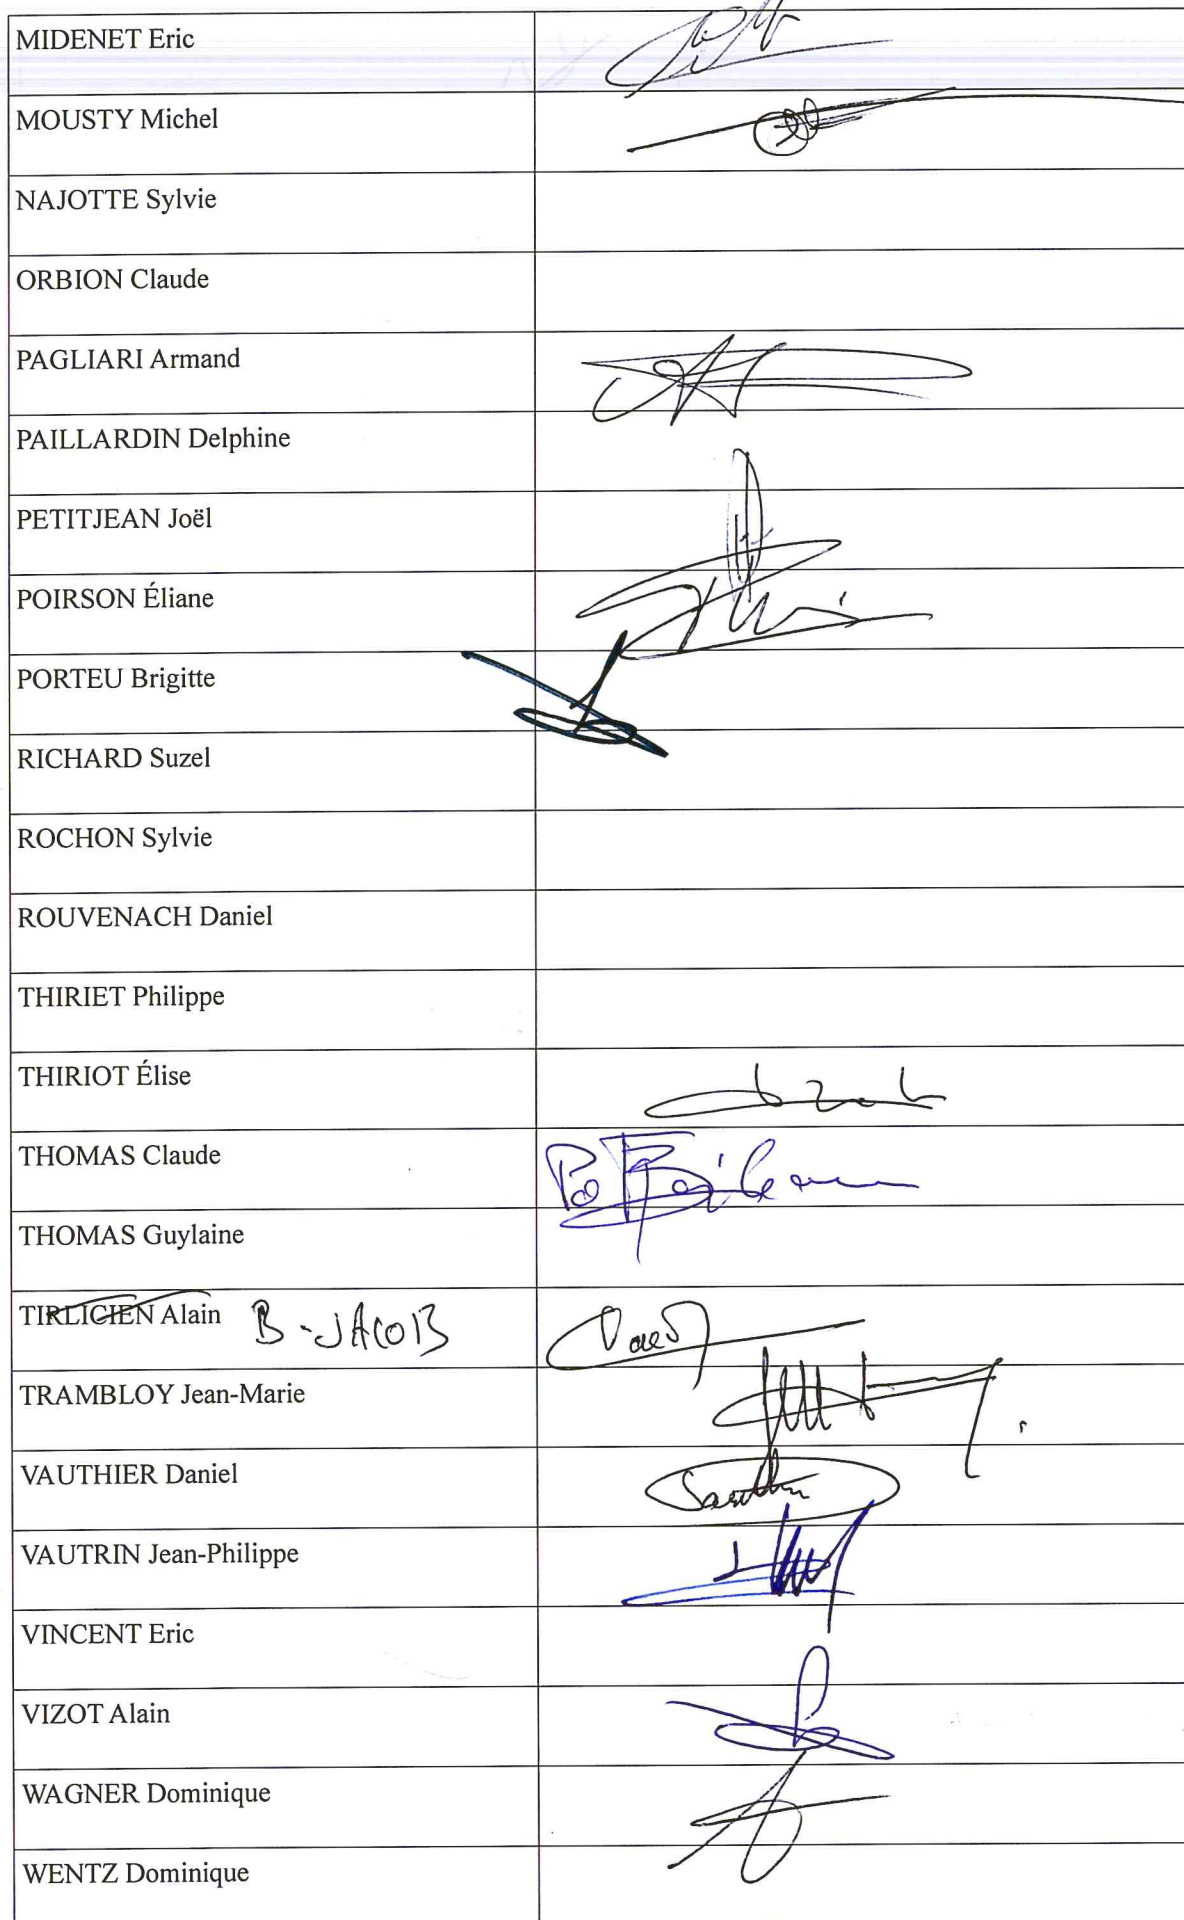 MIDENET Eric
MOUSTY Michel
NAJOTTE Sylvie
ORBION Claude
PAGLIARI Armand
PAILLARDIN Delphine
PETITJEAN Joël
POIRSON Éliane
PORTEU Brigitte
RICHARD Suzel
ROCHON Sylvie
ROUVENACH Daniel
THIRIET Philippe
THIRIOT Élise
THOMAS Claude
THOMAS Guylaine
TIRLICIEN Alain B-JACOB
TRAMBLOY Jean-Marie
VAUTHIER Daniel
VAUTRIN Jean-Philippe
VINCENT Eric
VIZOT Alain
WAGNER Dominique
WENTZ Dominique